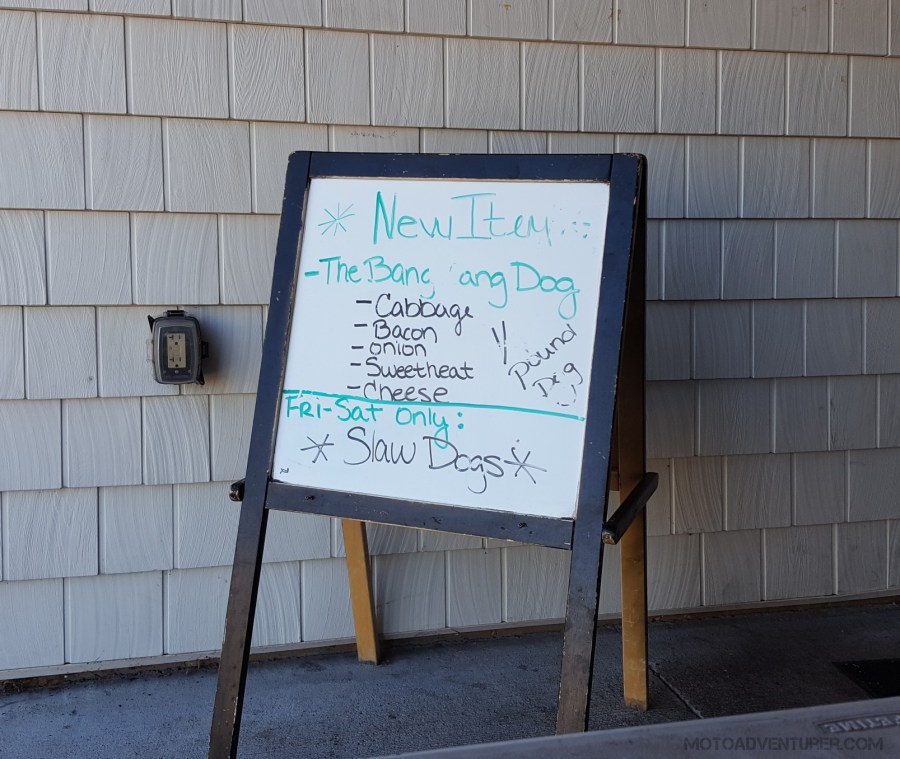 * New Item
- The Bang ang Dog
- Cabbage
- Bacon
- onion
- Sweetheat
- Cheese
Pound
Dog
Fri-Sat only:
* Slaw Dogs *
MOTOADVENTURER.COM